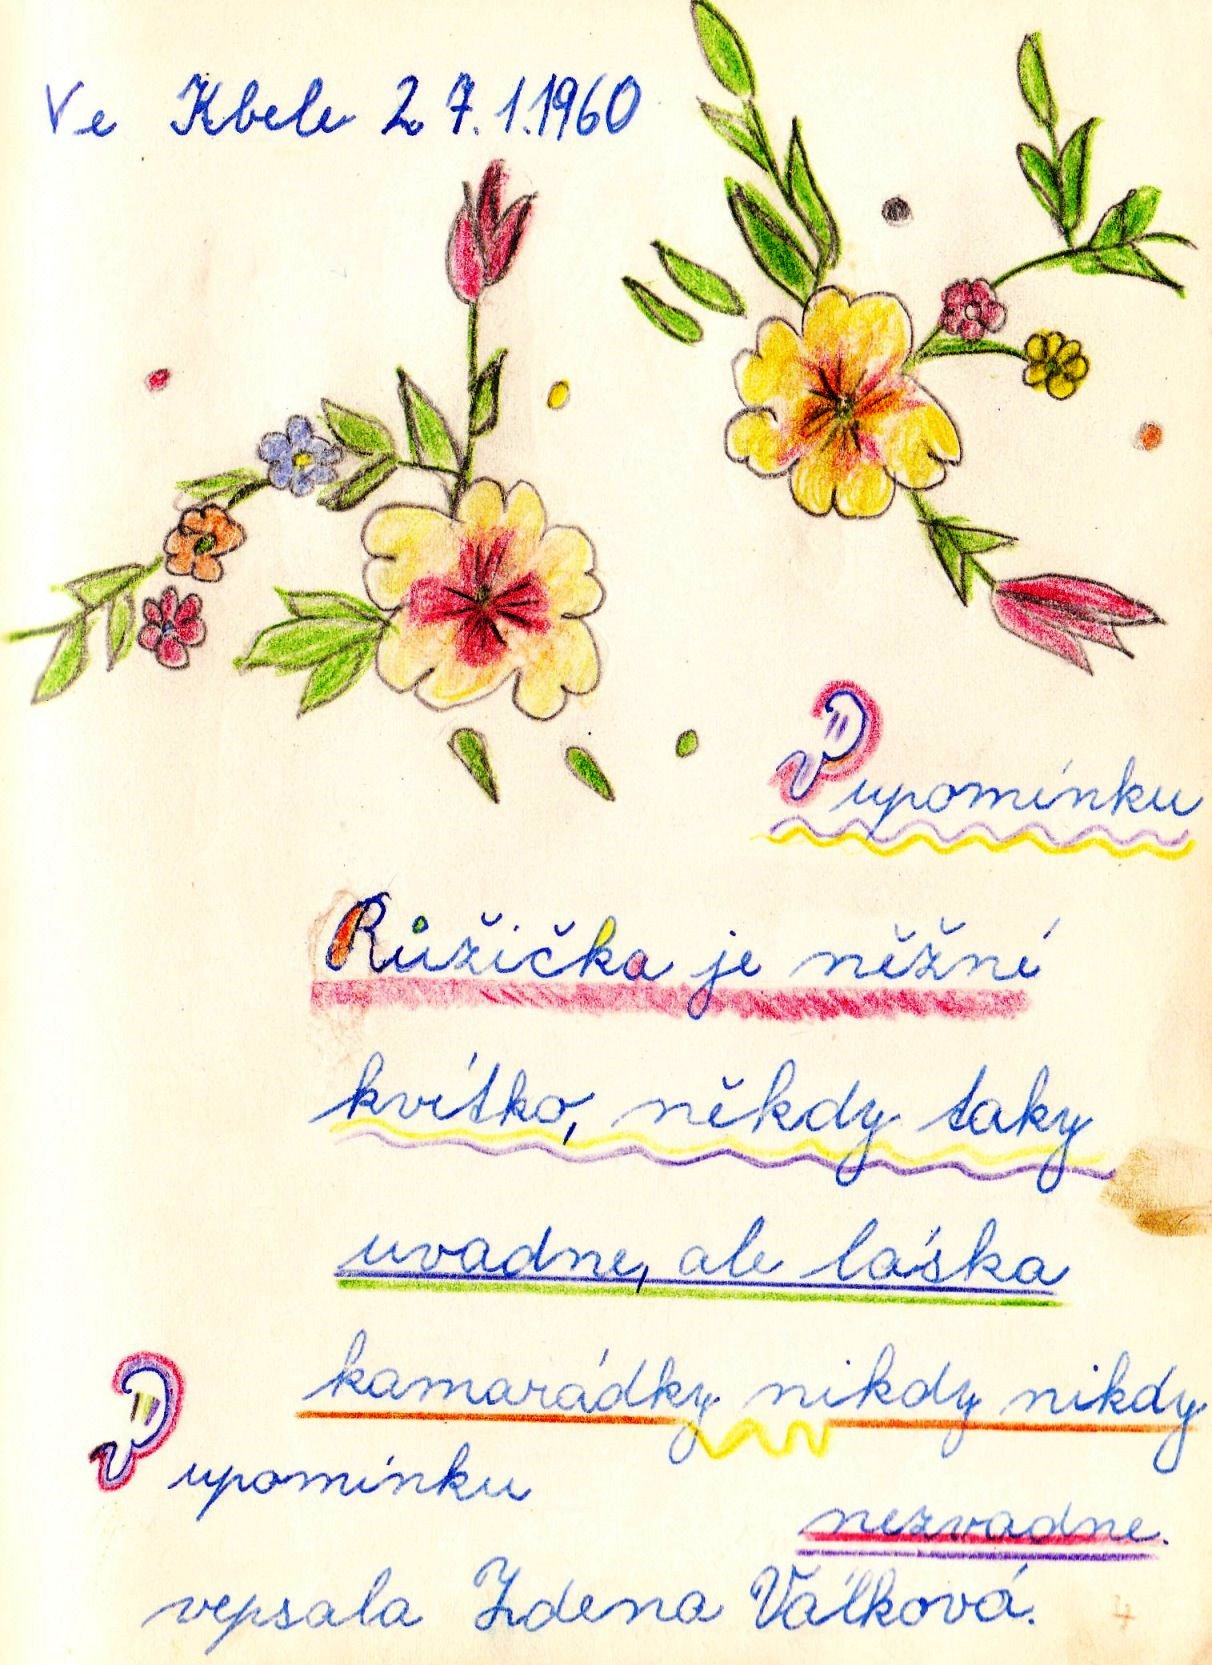 Ve Kbele 27.1.1960
V upomínku
Růžička je něžné
kvítko, někdy taky
uvadne, ale láska
kamarádky nikdy nikdy
nezvadne.
V upomínku
vepsala Zdena Válková.
4